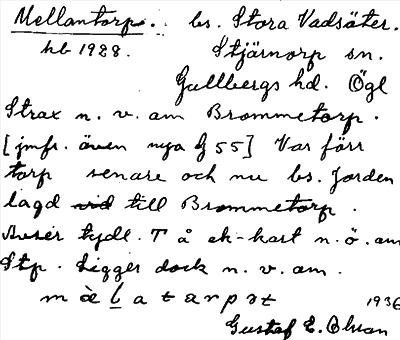 Mellantorp. bs. Stora Vadsäter.
hb 1928. Stjärnorp sn.
Gullbergs hd. Ögl
Strax n. v. om Brommetorp.
[jmfr. även nya G 55] Var förr
torp senare och nu bs. Jorden
lagd till Brommetorp.
Avser tydl. T å ek-kart n. ö. om
Stp. Ligger dock n. v. om.
1936
Gustaf E. Olsson